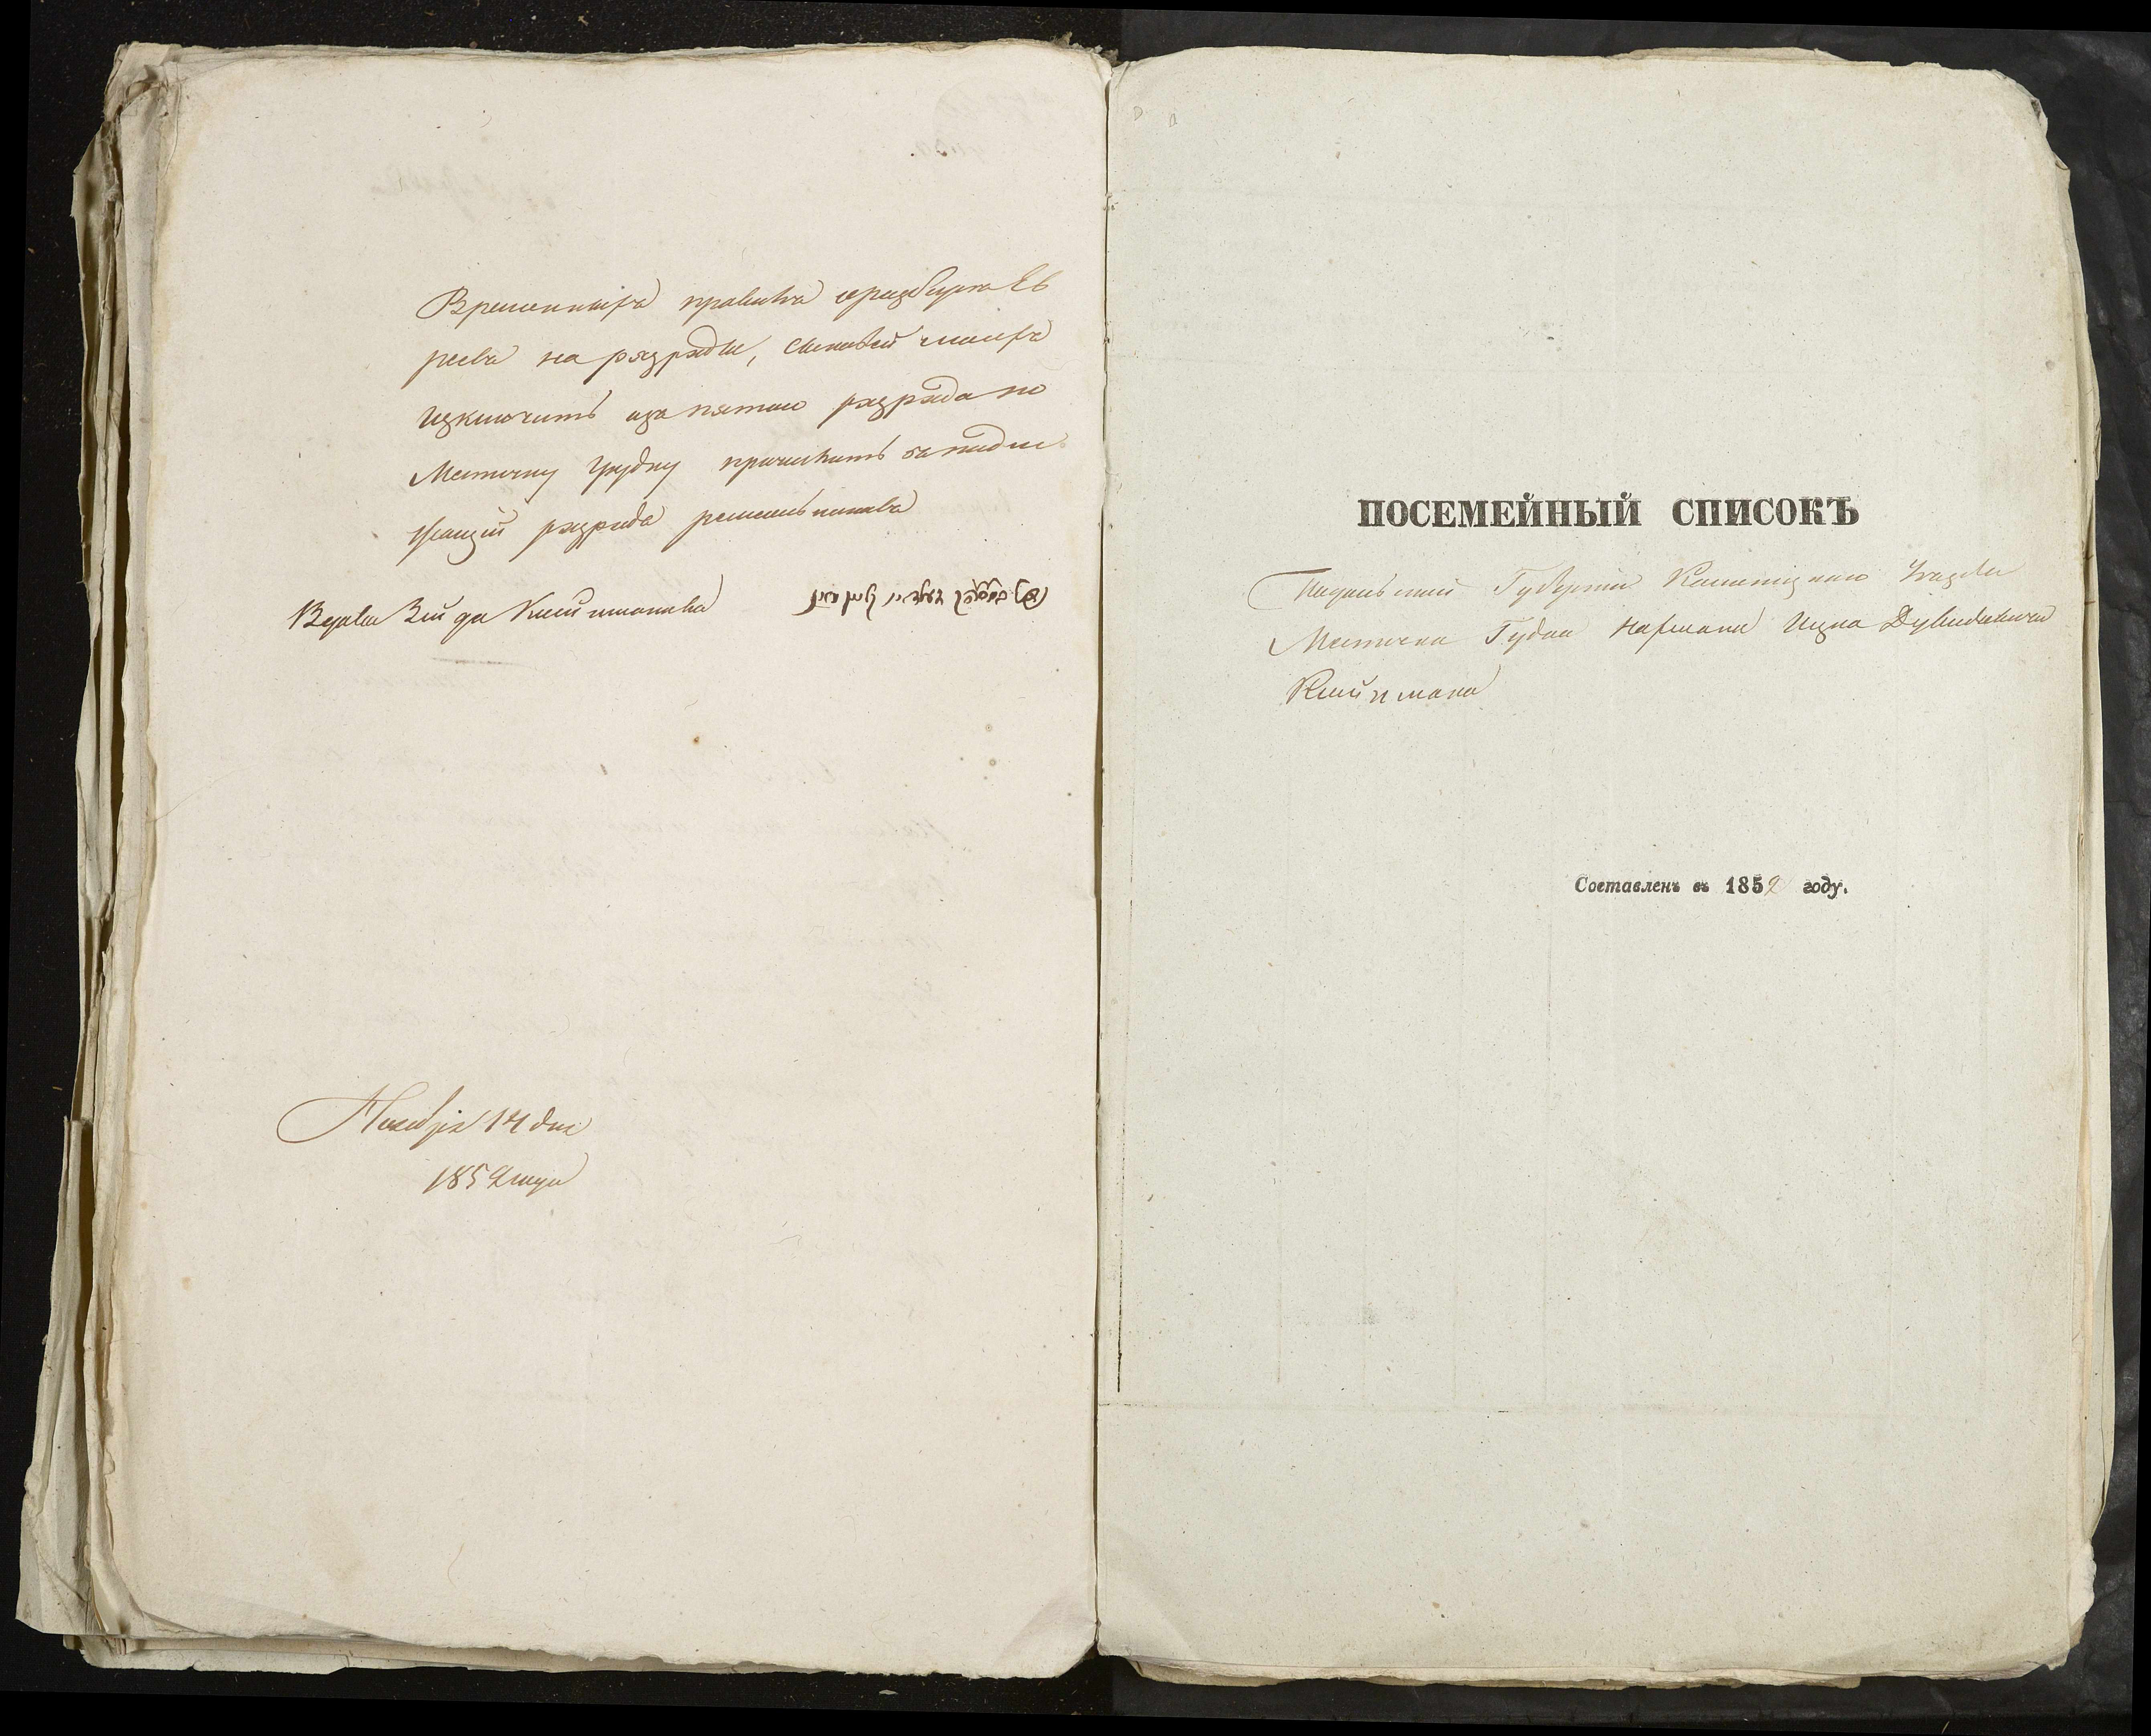 Временныхъ правилъ о разборѣ Ев
реевъ на разряды, сыновей моихъ
изключить изъ пятаго разряда по
Мѣстечку Грудку причислить въ надле
жащій разрядъ ремесленниковъ
Вдова Клейнманова
Ноября 14 дня
1852 года
ПОСЕМЕЙНЫЙ СПИСОКЪ
Подольской Губерніи Каменецкаго Уѣзда
Мѣстечка Дувидовича
Клейнмана
Составленъ въ 1852 году.